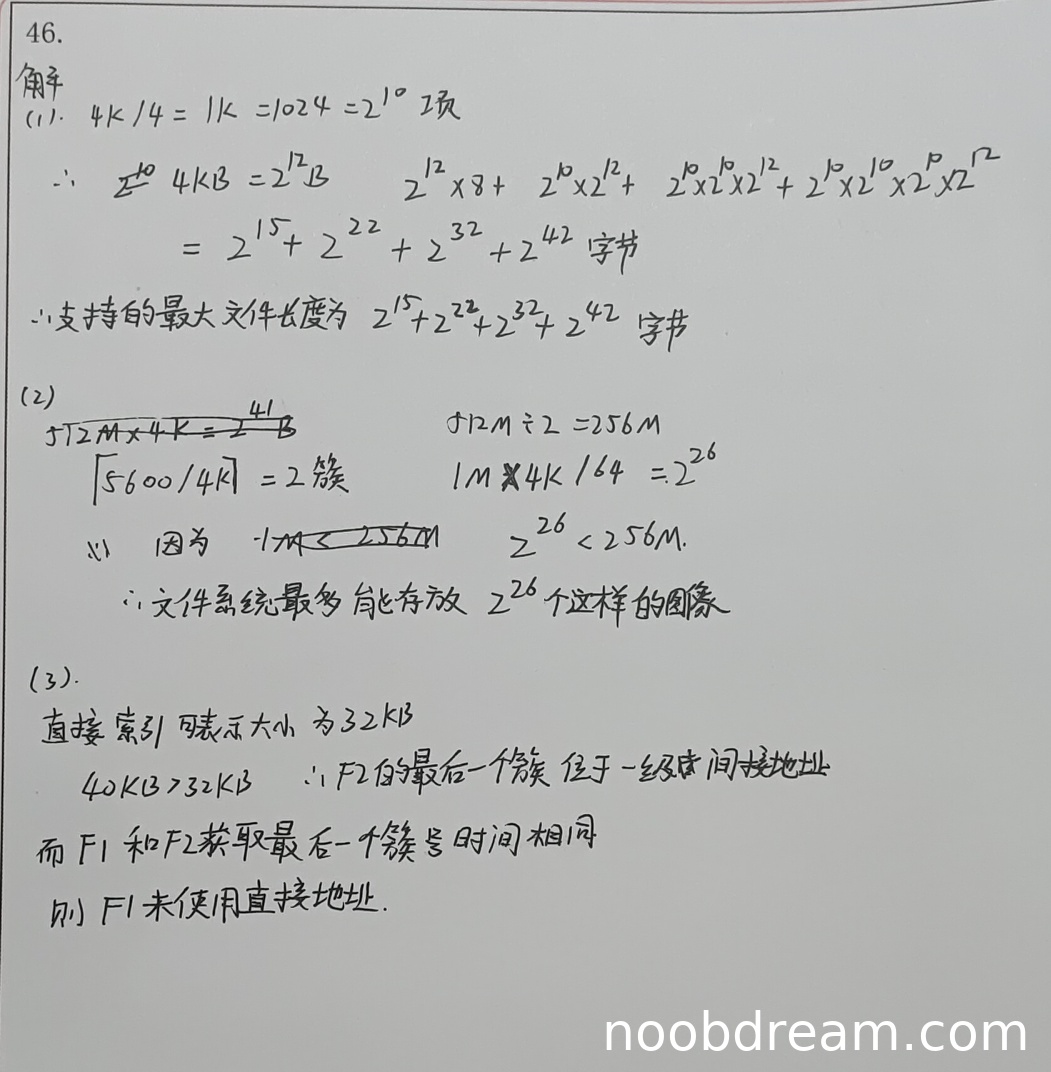 46.
解
(1). 4K/4 = 1K = 1024 = 2^10 项
∴ 4KB = 2^12B 2^12×8+ 2^10×2^12+ 2^10×2^10×2^12+ 2^10×2^10×2^10×2^12
= 2^15+ 2^22 + 2^32 + 2^42 字节
∴支持的最大文件长度为 2^15+2^22+2^32+2^42 字节
(2)
512M×4K = 2^41 B 512M÷2 =256M
⌈5600/4K⌉ = 2簇 1M×4K/64 = 2^26
因为 1M< 256M 2^26 < 256M.
∴文件系统最多能存放 2^26个这样的图像
(3).
直接索引可表示大小为32KB
40KB>32KB ∴F2的最后一个簇位于一级间接地址
而F1和F2获取最后一个簇号时间相同
则F1未使用直接地址.
noobdream.com